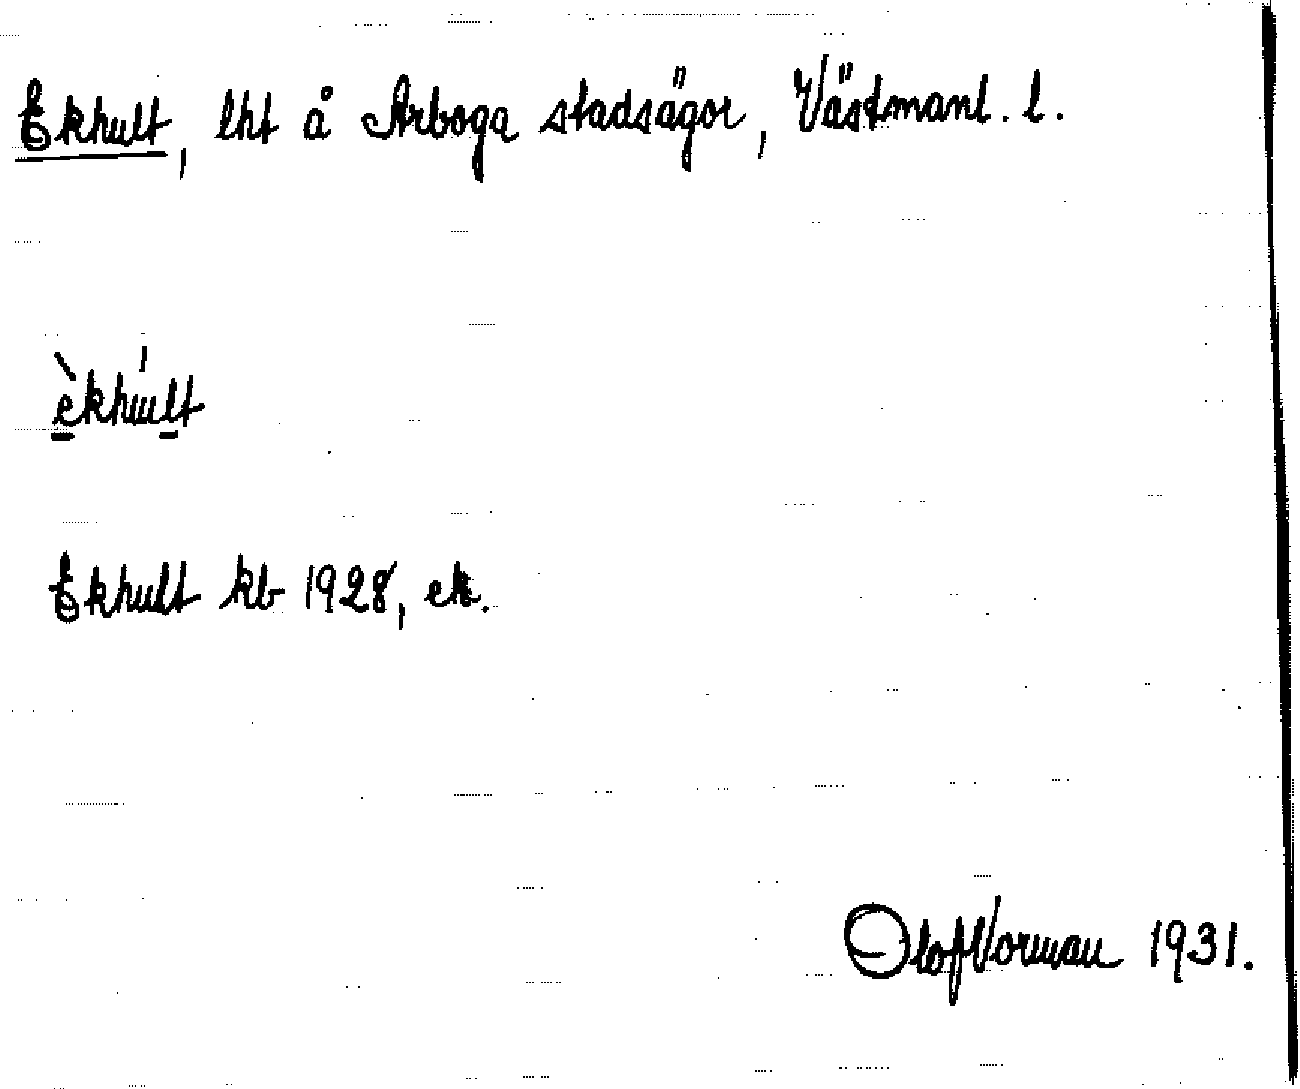 Ekhult, lht å Arboga stadsägor, Västmanl. l.
èkhúlt
Ekhult kb 1928, ek.
Olof Vorman 1931.